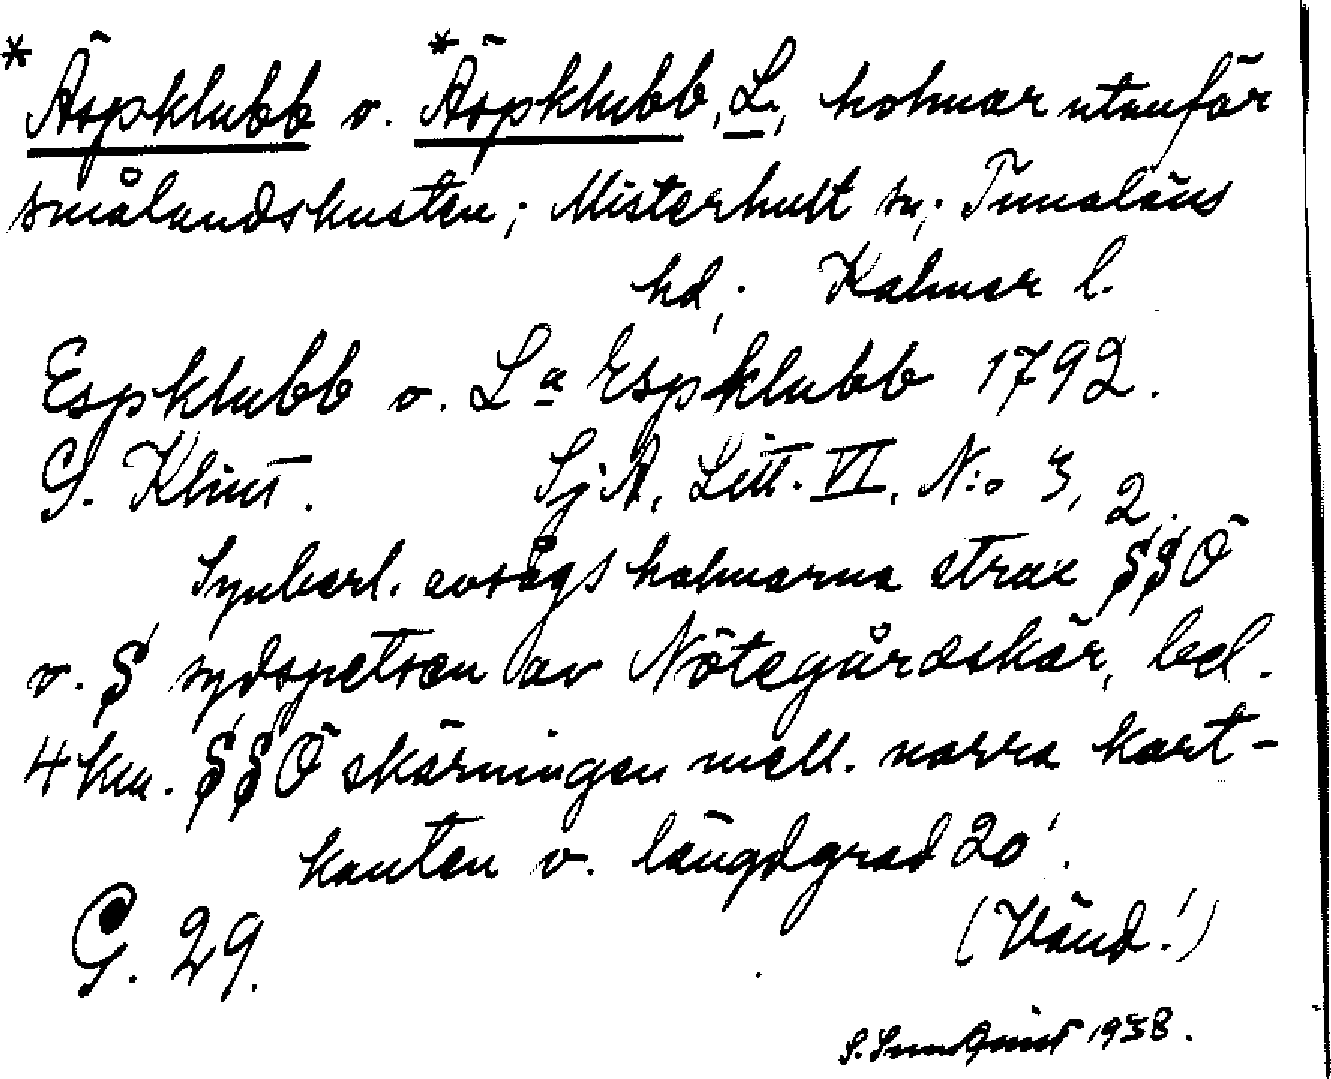 *Äspklubb o. *Äspklubb, L., holmar utanför
smålandskusten; Misterhult sn; Tunaläns
hd; Kalmar l.
Espklubb o. La Espklubb 1792.
G. Klint. SjA, Litt. VI, N:o 3, 2.
Synbarl. avsågs holmarna strax SSÖ
o. S sydspetsen av Nötegårdskär, bel.
4 km. SSÖ skärningen mell. norra kart-
kanten o. längdgrad 20'.
G. 29. (Vänd!)
S. Sundquist 1938.